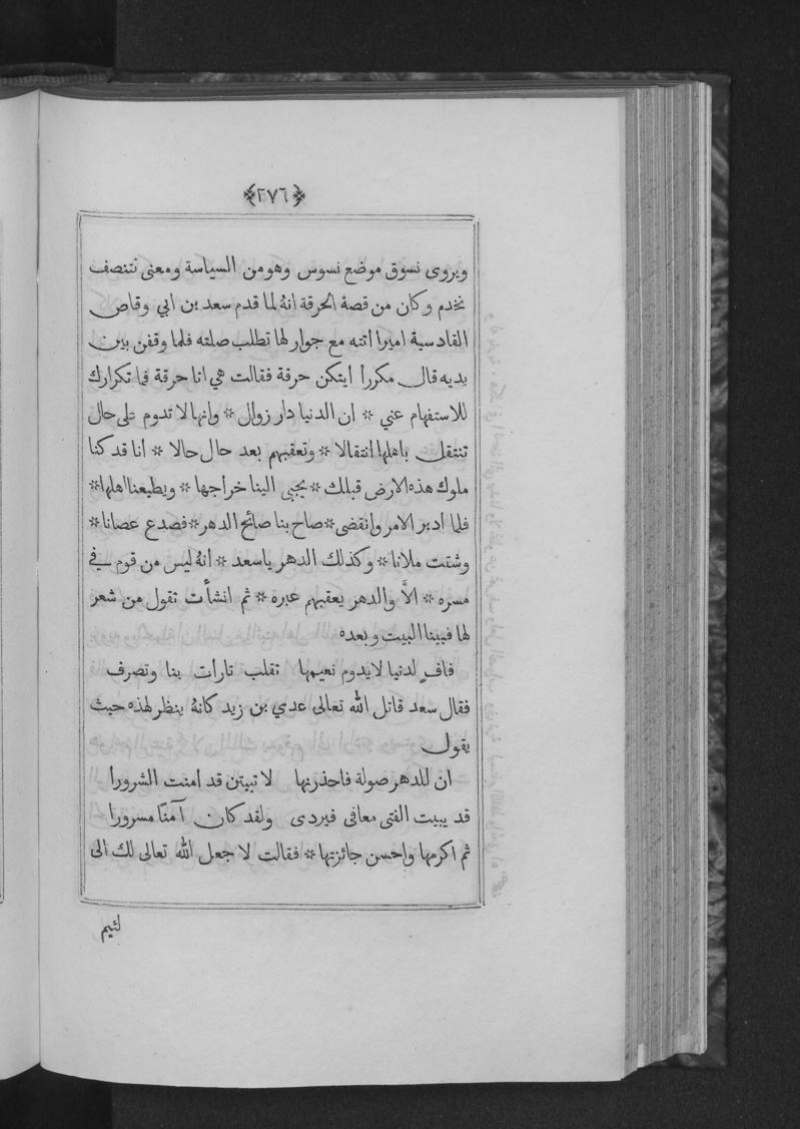 ﴿٢٧٦﴾
ويروى نسوق موضع نسوس وهو من السياسة ومعنى نتنصف
نخدم وكان من قصة الحرقة انهُ لما قدم سعد بن ابي وقاص
القادسية اميرا اتته مع جوار لها تطلب صلته فلما وقفن بين
يديه قال مكررا ايتكن حرقة فقالت هي انا حرقة فما تكرارك
للاستفهام عني * ان الدنيا دار زوال * وانها لا تدوم على حال
تنتقل باهلها انتقالا * وتعقبهم بعد حال حالا * انا قد كنا
ملوك هذه الارض قبلك * يجبى الينا خراجها * ويطيعنا اهلها *
فلما ادبر الامر وانقضى * صاح بنا صائح الدهر * فصدع عصانا *
وشتت ملانا * وكذلك الدهر ياسعد * انهُ ليس من قوم في
مسره * الاَّ والدهر يعقبهم عبره * ثم انشأت تقول من شعر
لها فبينا البيت وبعده
فافٍ لدنيا لا يدوم نعيمها تقلب تارات بنا وتصرف
فقال سعد قاتل الله تعالى عدي بن زيد كانهُ ينظر لهذه حيث
يقول
ان للدهر صولة فاحذرنها لا تبيتن قد امنت الشرورا
قد يبيت الفتى معافى فيردى ولقد كان آمنًا مسرورا
ثم اكرمها واحسن جائزتها * فقالت لا جعل الله تعالى لك الى
لئيم